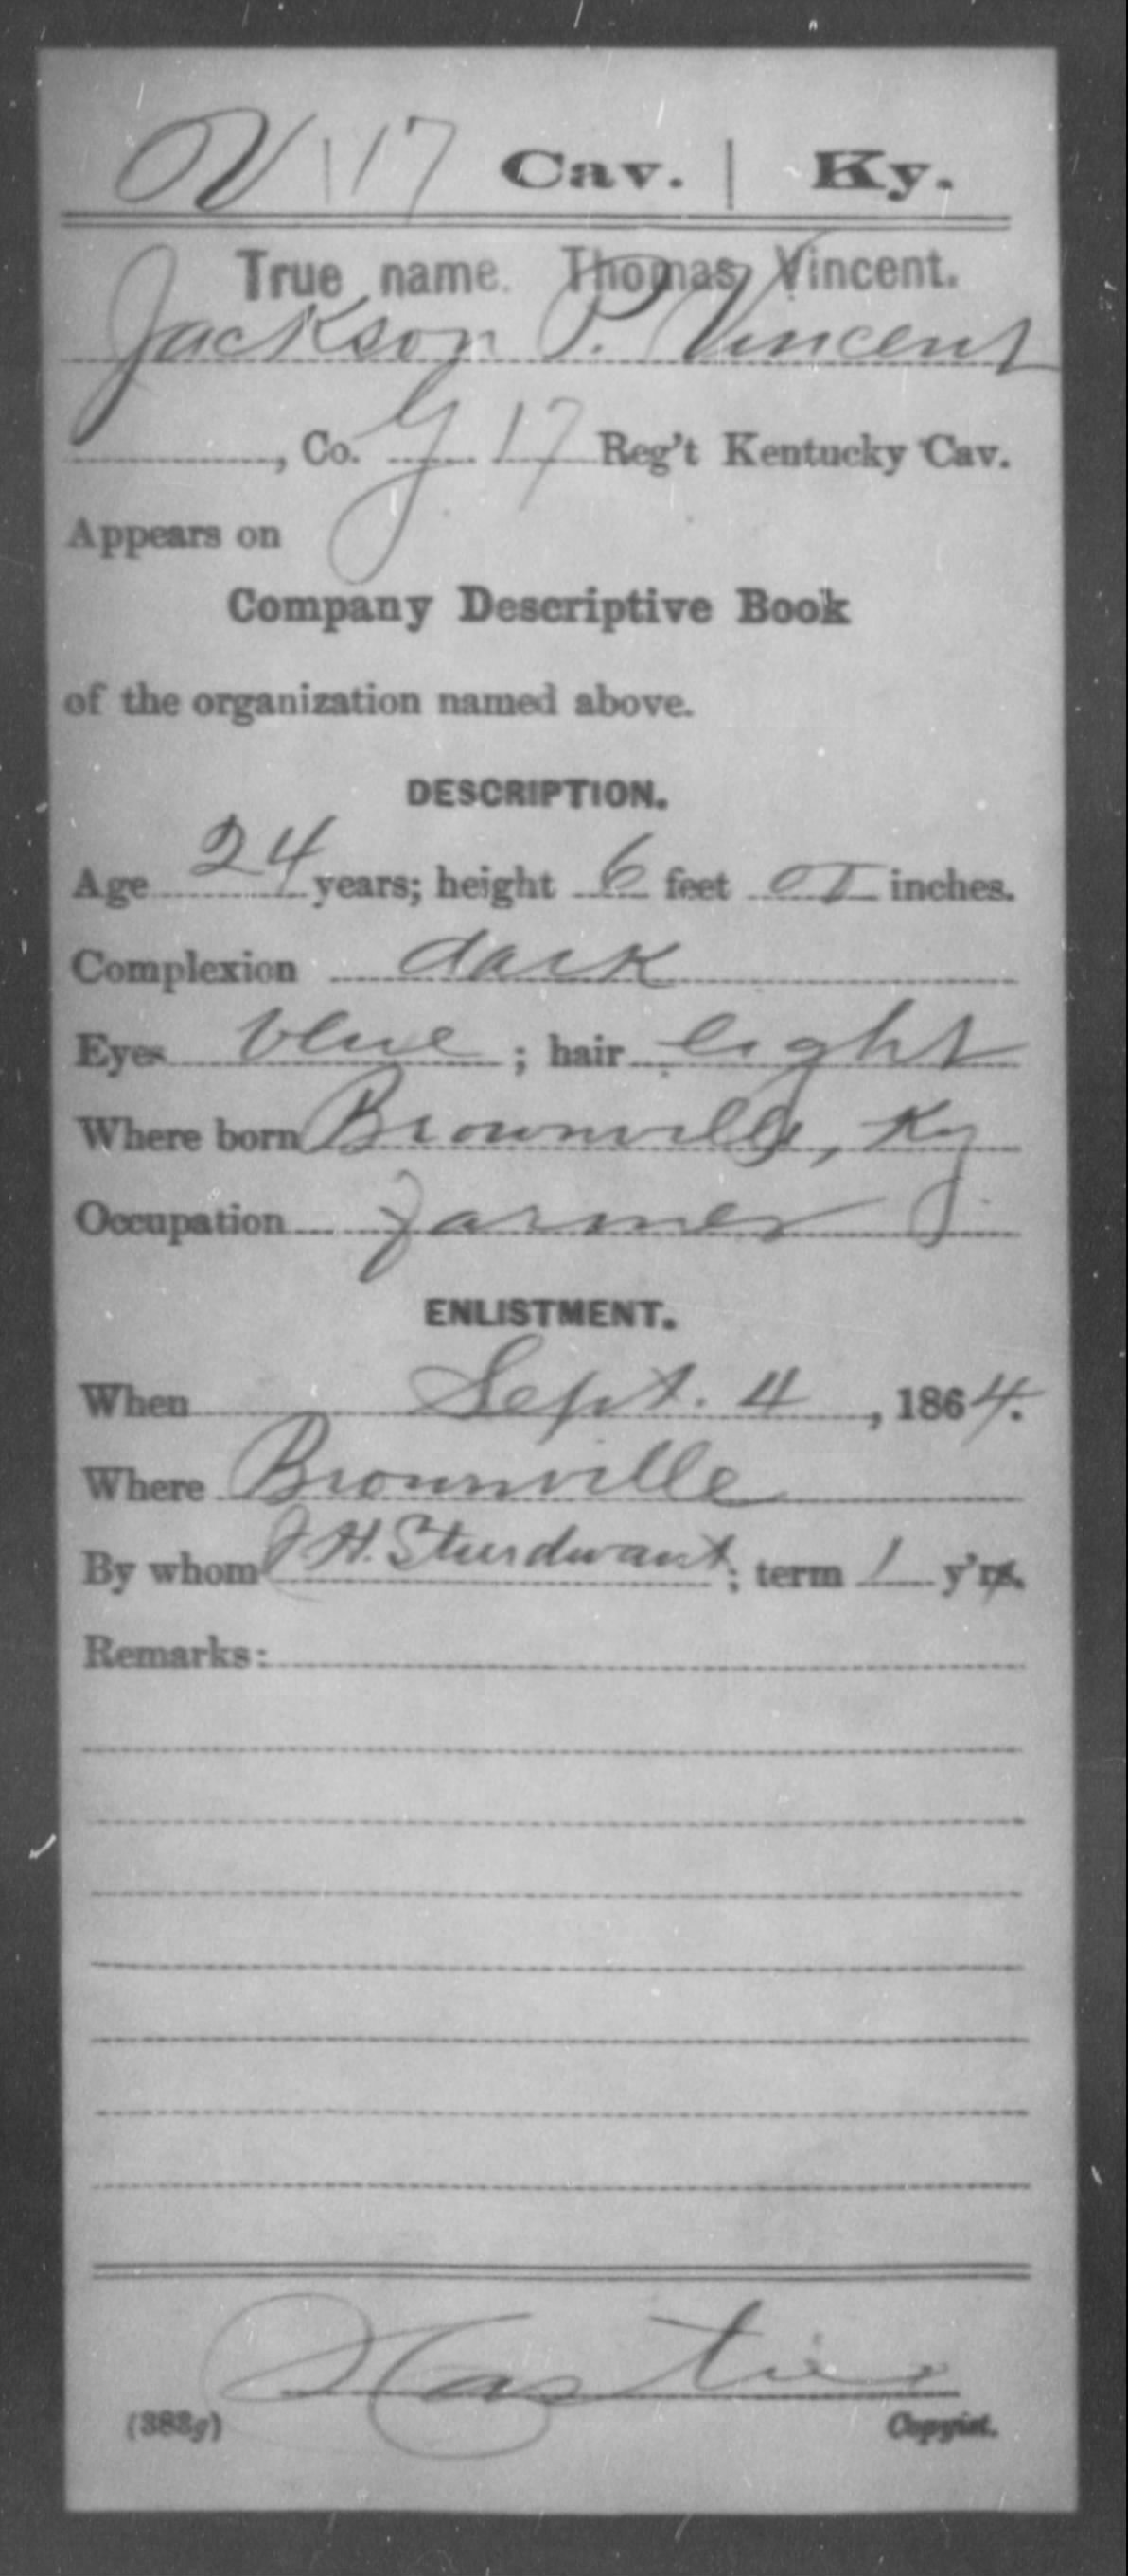 V | 17 Cav. | Ky.
True name. Thomas Vincent.
Jackson P. Vincent
, Co. G, 17 Reg't Kentucky Cav.
Appears on
Company Descriptive Book
of the organization named above.
DESCRIPTION.
Age 24 years; height 6 feet inches.
Complexion dark
Eyes blue; hair light
Where born Brownville, Ky
Occupation farmer
ENLISTMENT.
When Sept. 4, 1864.
Where Brownville
By whom J H. Sturdwant; term 1 y'rs.
Remarks:
Hastie
(383g) Copyist.